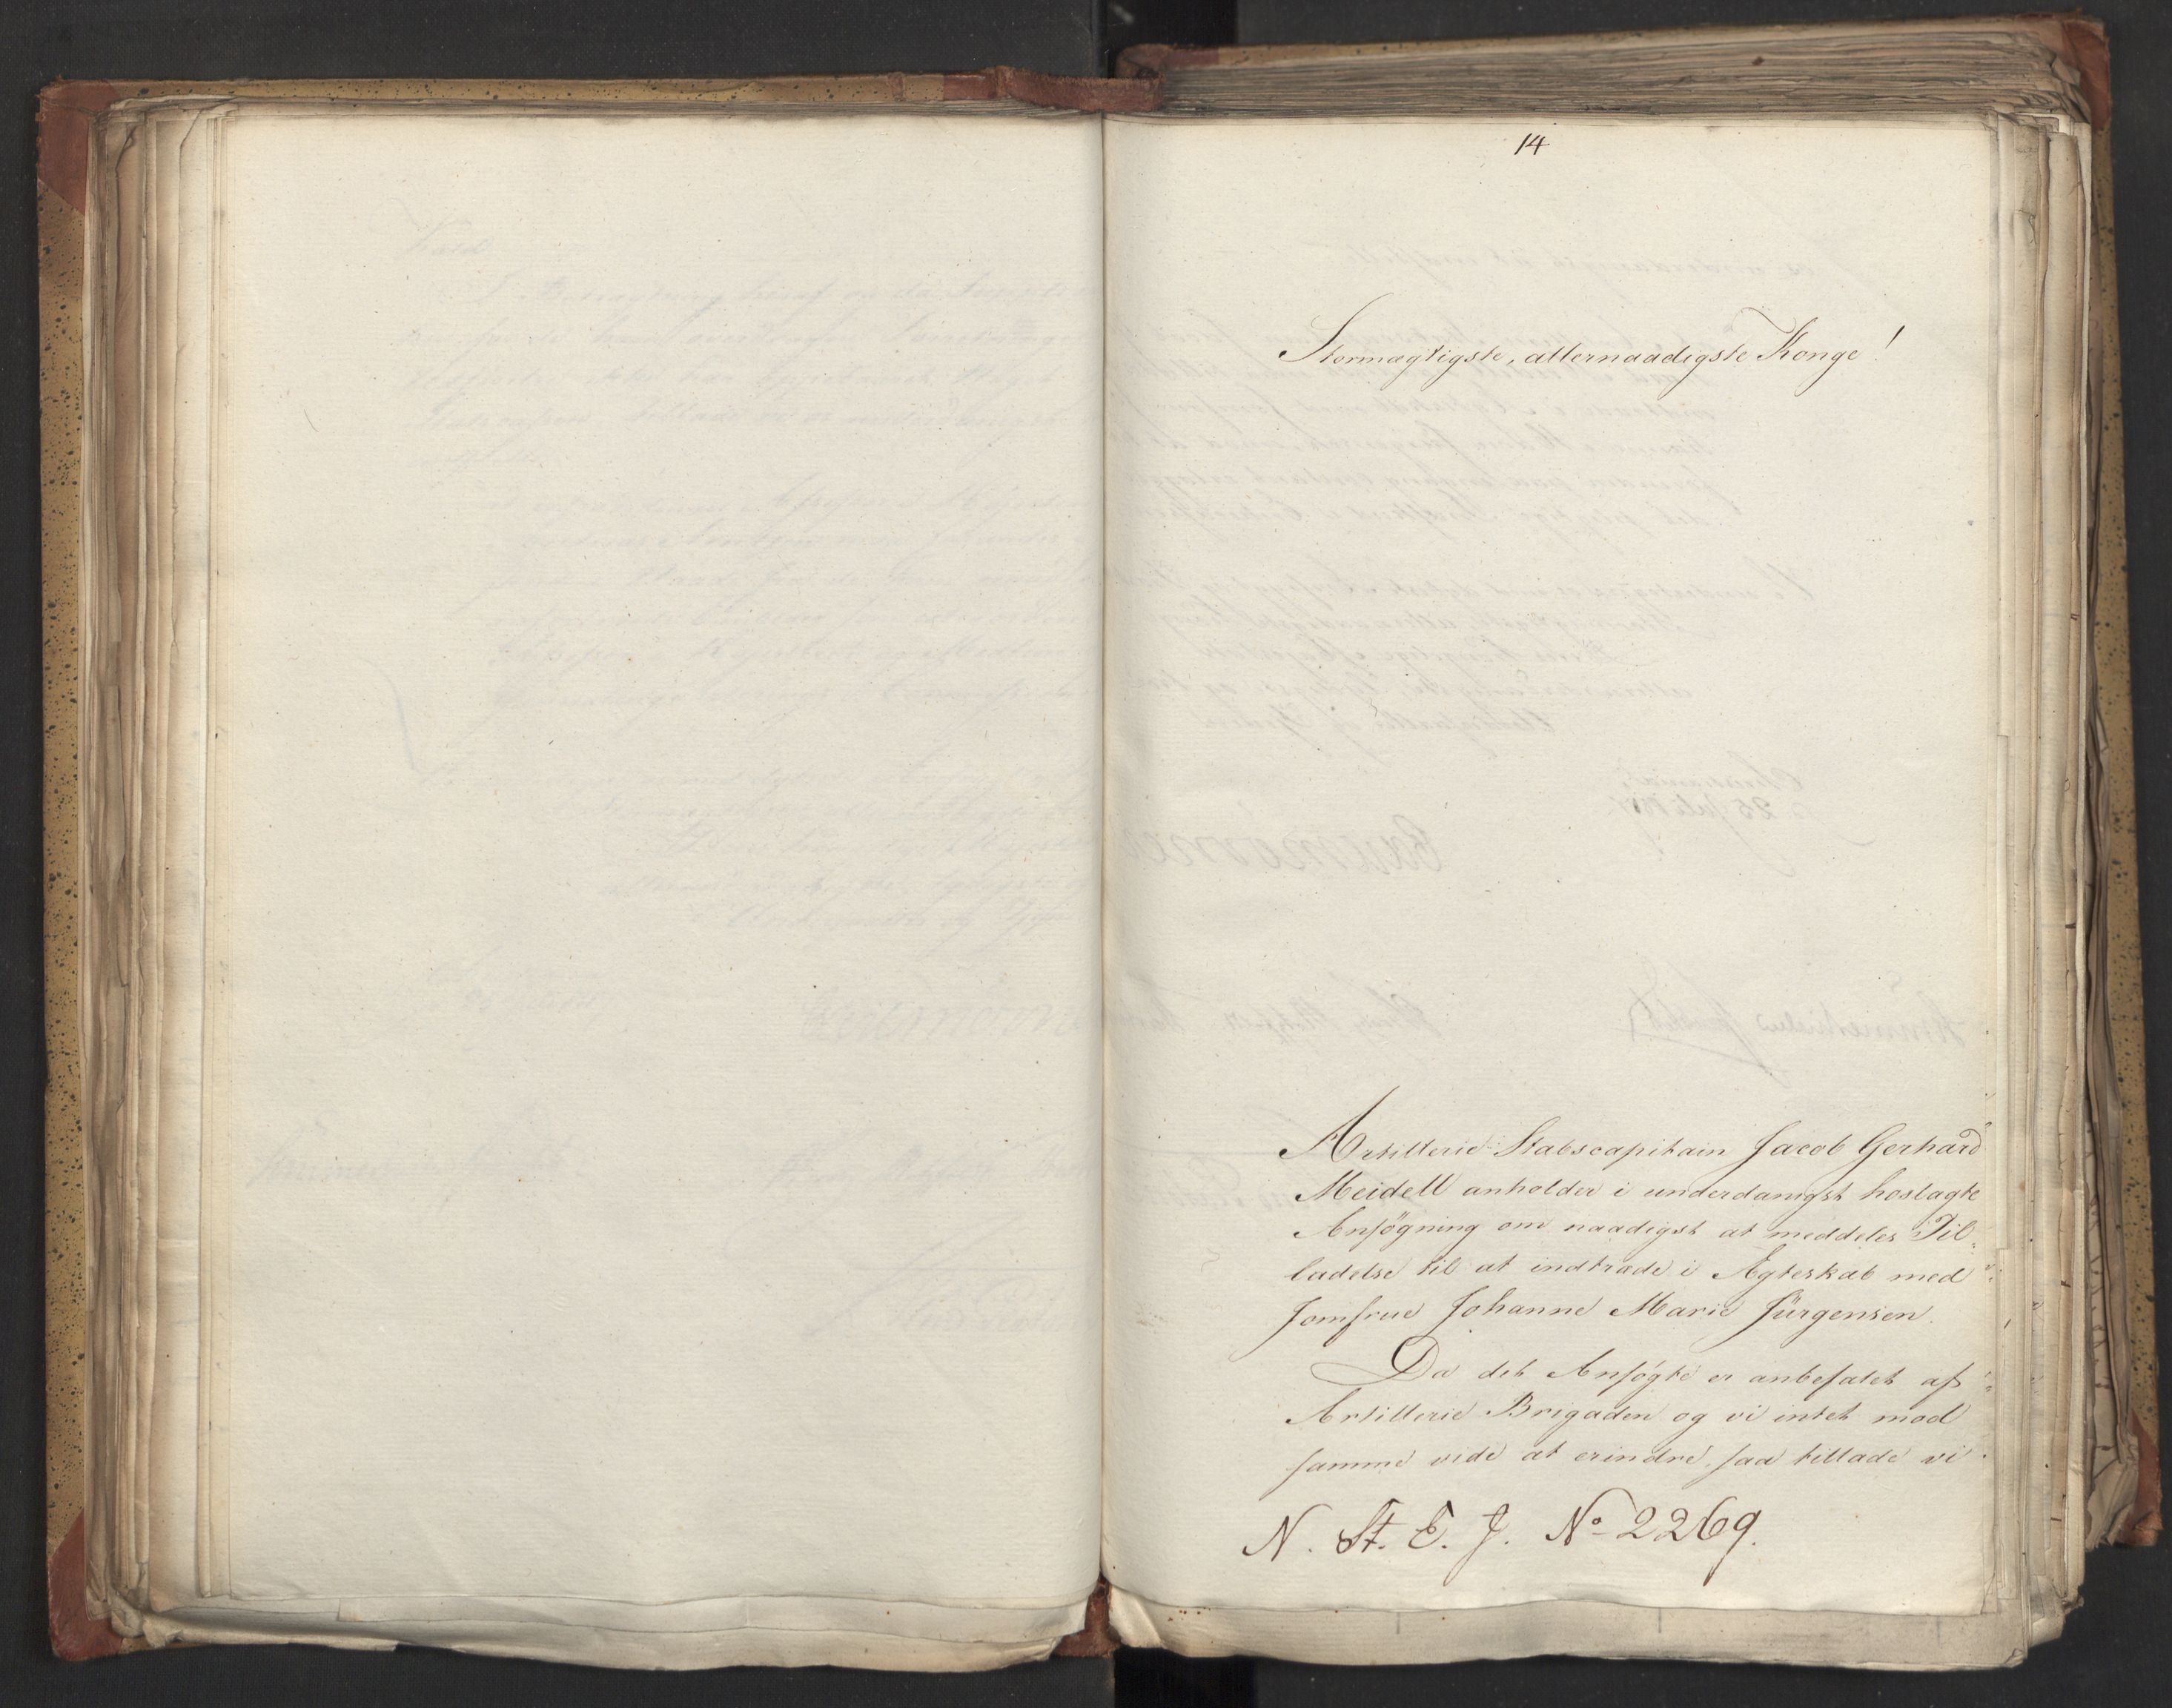 14
Stormægtigste, allernaadigste Konge!
Artillerie-Stabscapitain Jacob Gerhard
Meidell anholder i underdanigst hoslagte
Ansøgning om naadigst at meddeles Til-
ladelse til at indtræde i Ægteskab med
Jomfrue Johanne Marie Jürgensen.
Da det Ansøgte er anbefalet af
Artillerie Brigaden og vi intet mod
samme vide at erindre, saa tillade vi
N. St. E. J. No 2269.